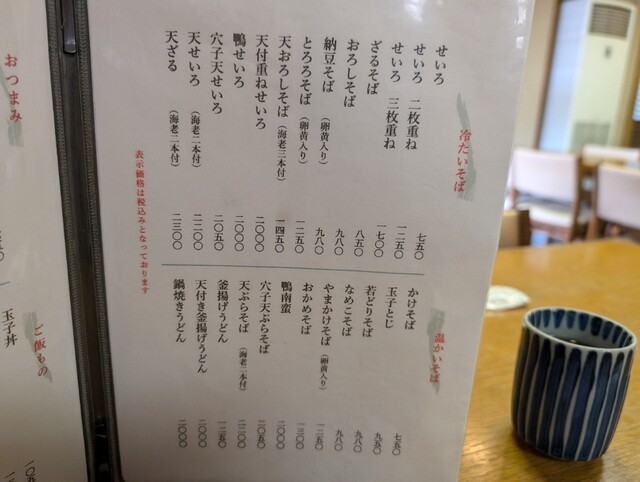 冷たいそば
せいろ 七五〇
せいろ 二枚重ね 一二五〇
せいろ 三枚重ね 一七〇〇
ざるそば 八五〇
おろしそば 九八〇
納豆そば(卵黄入り) 九八〇
とろろそば(卵黄入り) 一二五〇
天おろしそば(海老三本付) 一四五〇
天付重ねせいろ 二〇〇〇
鴨せいろ 二〇〇〇
穴子天せいろ 二〇五〇
天せいろ(海老二本付) 二二〇〇
天ざる(海老二本付) 二三〇〇
表示価格は税込みとなっております
温かいそば
かけそば 七五〇
玉子とじ 九五〇
若どりそば 九八〇
なめこそば 九八〇
やまかけそば(卵黄入り) 一二五〇
おかめそば 一三〇〇
鴨南蛮 二〇〇〇
穴子天ぷらそば 二〇五〇
天ぷらそば(海老二本付) 二二〇〇
釜揚げうどん 一二五〇
天付き釜揚げうどん 二〇〇〇
鍋焼きうどん 二〇〇〇
おつまみ
ご飯もの
玉子丼